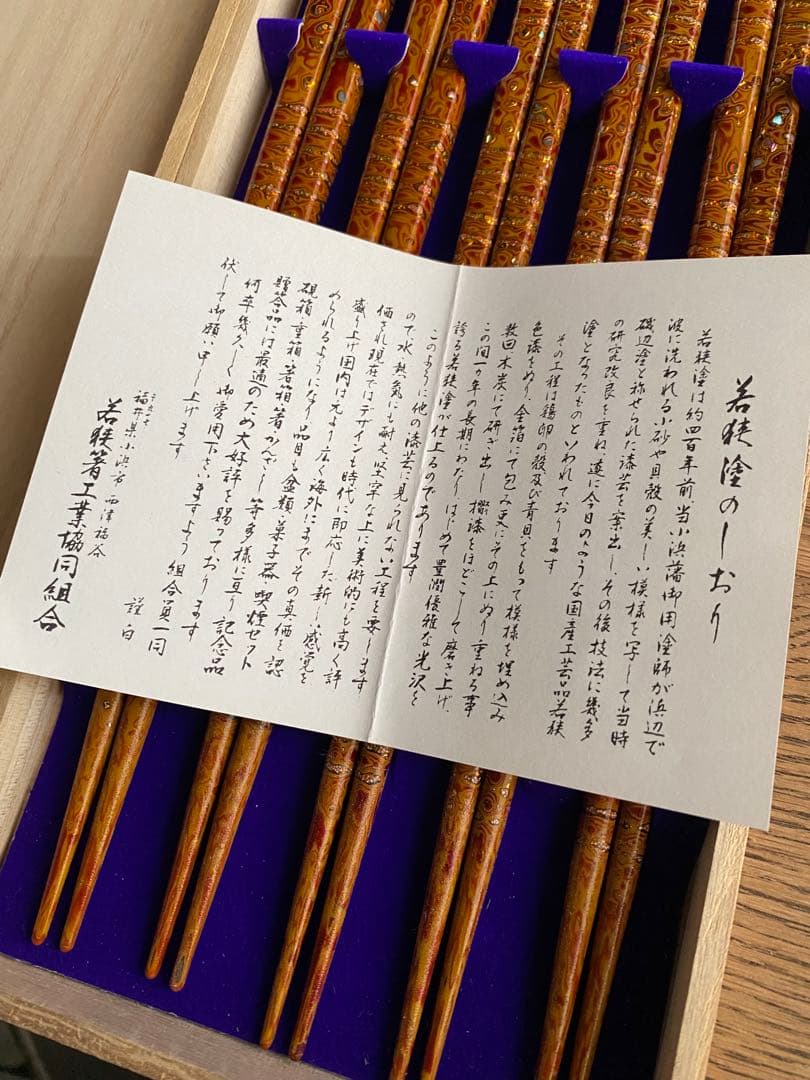 若狭塗のしおり
若狭塗は約四百年前当小浜藩御用塗師が浜辺で
波に洗われる小砂や貝殻の美しい模様を写して当時
磯辺塗と称せられた漆芸を案出し、その後技法に幾多
の研究改良を重ね、遂に今日のような国産工芸品若狭
塗となったものといわれております
その工程は鶏卵の殻及び青貝をもって模様を埋め込み
色漆をぬり、金箔にて包み更にその上にぬり重ねる事
数回、木炭にて研ぎ出し、摺漆をほどこして磨き上げ、
この間一カ年の長期にわたり、はじめて豊潤優雅な光沢を
誇る若狭塗が仕上るのであります
このように他の漆芸に見られない工程を要します
ので水・熱気にも耐え、堅牢な上に美術的にも高く評
価され現在ではデザインも時代に即応した新しい感覚を
盛り上げ国内は元より広く海外にまでその真価を認
められるようになり品目も盆類、菓子器、喫煙セット
硯箱・重箱・箸箱・箸・かんざし等多様に亘り、記念品
贈答品には最適のため大好評を賜っております
何卒幾久しく御愛用下さいますよう組合員一同
伏して御願い申し上げます
謹白
福井県小浜市西津福谷
若狭箸工業協同組合